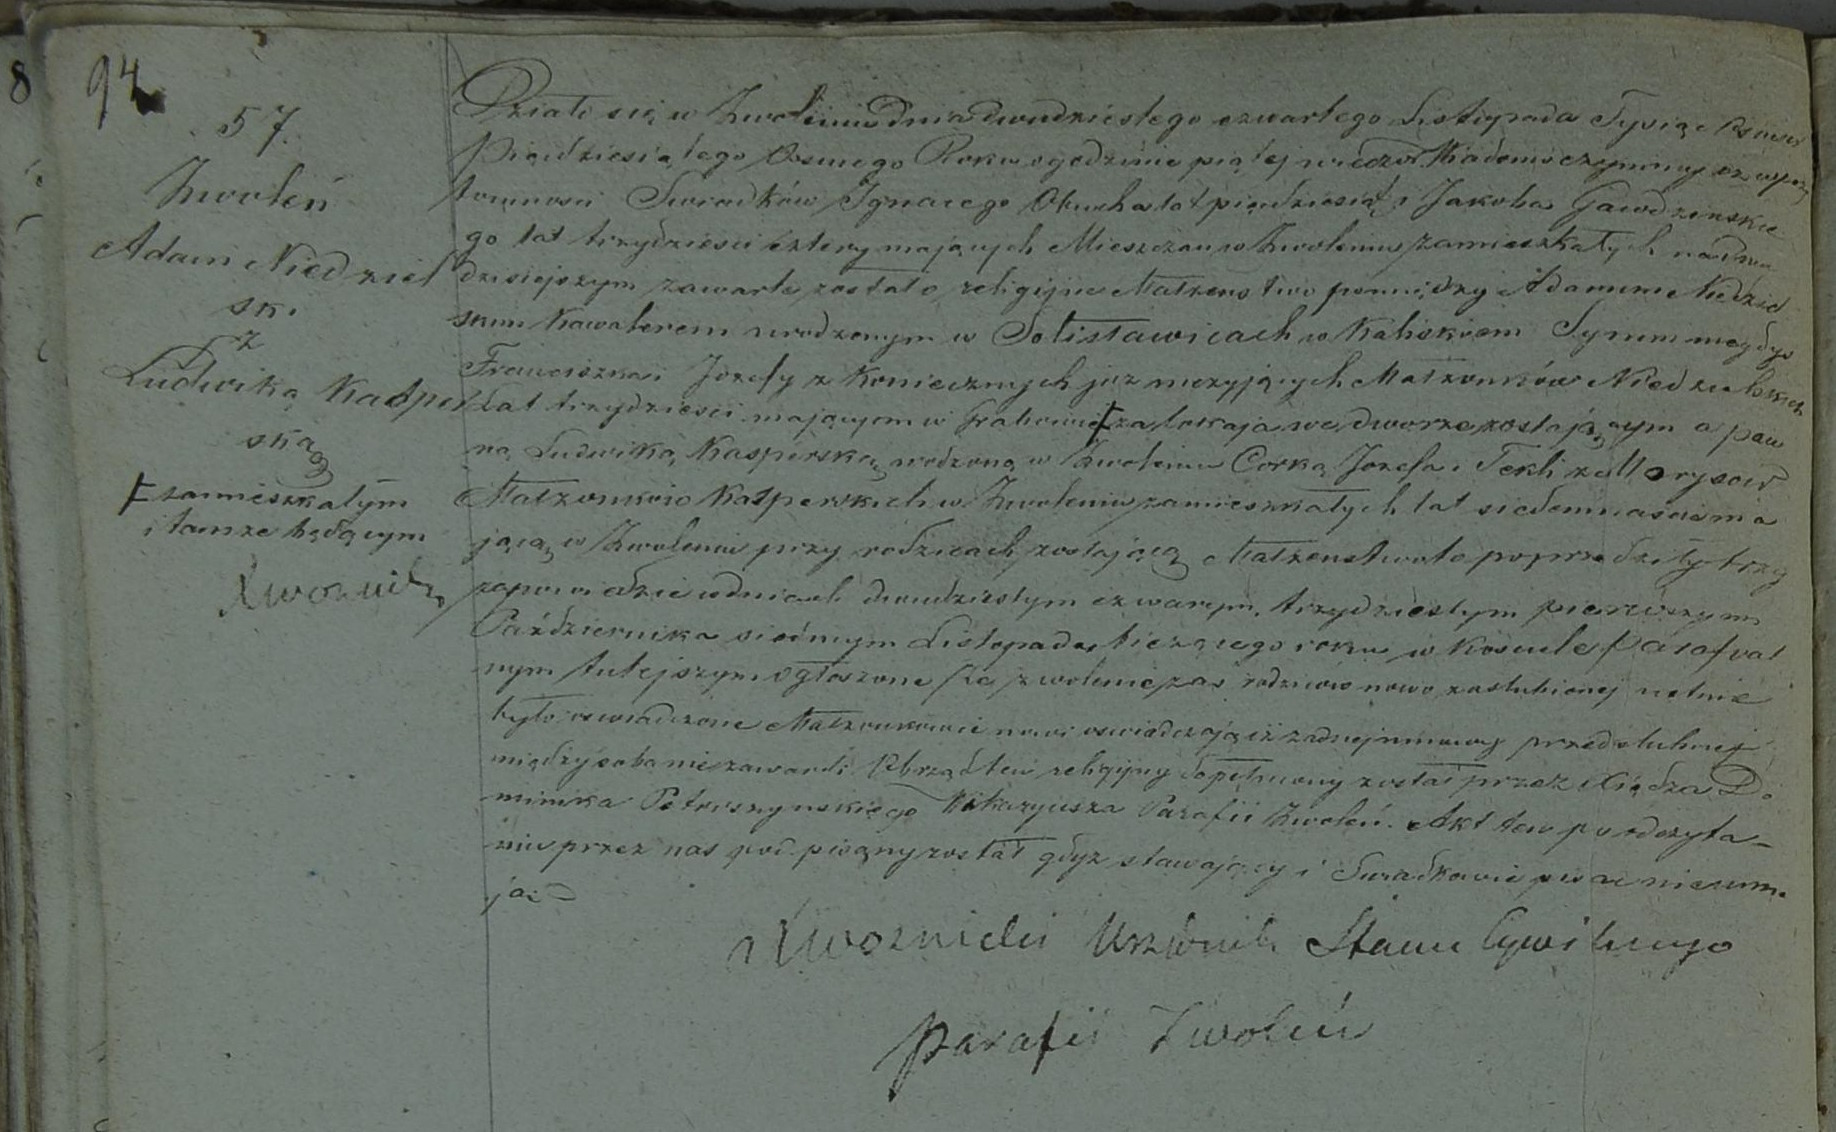 8
94
57.
Zwoleń
Adam Niedziel
ski
z
Ludwiką Kasper
ską
zamieszkałym
i tamże będącym
Działo się w Zwoleniu dnia dwudziestego czwartego Listopada Tysiąc Osmset
Pięćdziesiątego Osmego Roku o godzinie piątej wieczor Wiadomo czynimy że w przy
tomności Swiadków Ignacego Obucha lat pięćdziesiąt i Jakoba Gawdzinskie
go lat trzydzieści cztery mających Mieszczan w Zwoleniu zamieszkałych na dniu
dzisiejszym zawarte zostało religijne Małżenstwo pomiędzy Adamem Niedziel
skim Kawalerem urodzonym w Solisławicach w Kaliskiem Synem niegdyś
Franciszka i Jozefy z Koniecznych już nieżyjących Małżonków Niedzielskich
Lat trzydzieści mającym w Grabowie za lokaja we dworze zostającym a pan
ną Ludwiką Kasperską urodzoną w Zwoleniu Corką Jozefa i Tekli z Morysow
Małżonkow Kasperskich w Zwoleniu zamieszkałych lat siedemnaście ma
jącą w Zwoleniu przy rodzicach zostającą Małżenstwo to poprzedziły trzy
zapowiedzie w dniach dwudziestym czwartym, trzydziestym pierwszym
Października siodmym Listopada bieżącego roku w Kosciele Parafial
nym tutejszym ogłoszone zwolenie zas rodzicow nowo zaslubionej ustnie
było oswiadczone Małżonkowie nowi oswiadczają iż żadnej umowy przedslubnej
między sobą nie zawarli Obrządek ten religijny dopełniony został przez Xiędza Do
minika Petruszynskiego Wikaryusza Parafii Zwoleń. Akt ten po odczyta-
niu przez nas podpisany został gdyż stawający i Swiadkowie pisac nie umie
ją
X Woznicki Urzędnik Stanu Cywilnego
Parafii Zwoleń